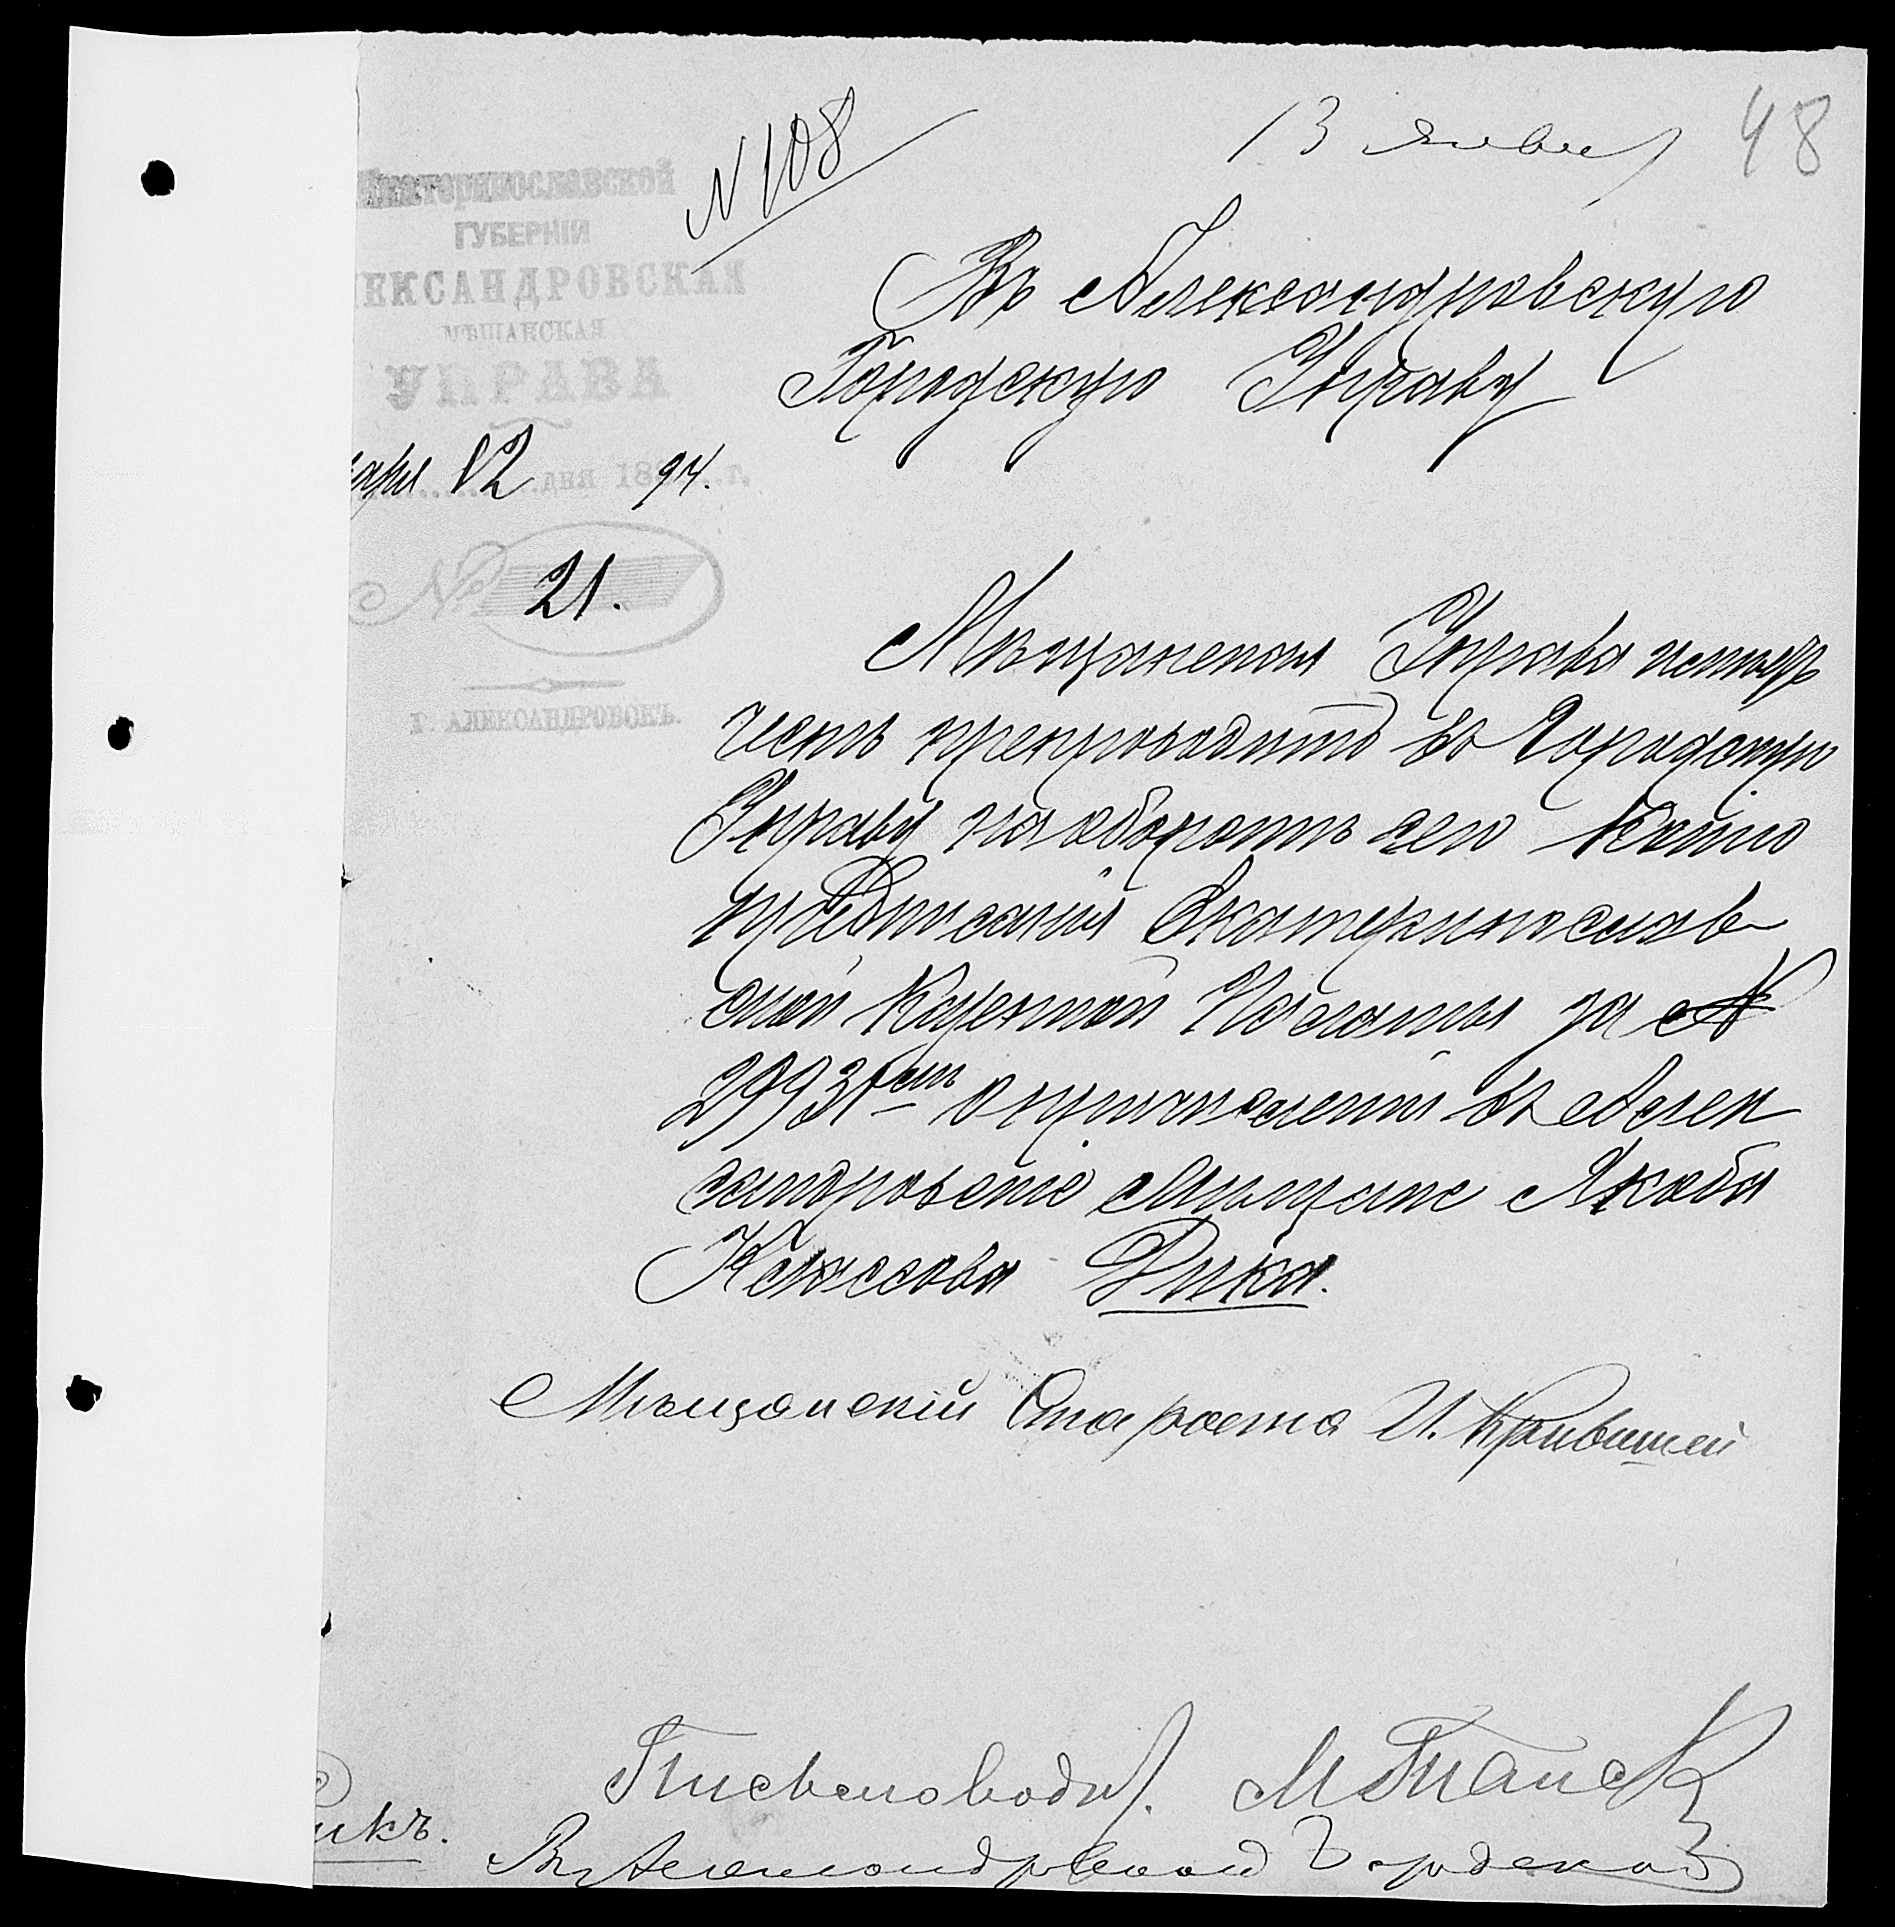 48
13 Январ
N 108
Екатеринославской
ГУБЕРНІИ
ЕКСАНДРОВСКАЯ
МѢЩАНСКАЯ
УПРАВА
аря 12 дня 18 94. г.
№ 21.
Г. АЛЕКСАНДРОВСКЪ.
Въ Александровскую
Городскую Управу
Мѣщанская Управа имѣетъ
честь препроводить въ Городскую
Управу на оборотѣ сего копію
предписанія Екатеринослав
ской Казенной Палаты за №
29931 о причисленіи въ Алек
сандровскіе Мѣщане Якова
Классова Дика.
Мѣщанскій Староста И.
Письмоводи.
икъ.
Въ Александровской Городской